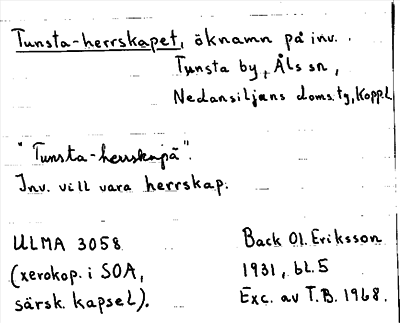 Tunsta-herrskapet, öknamn på inv.
Tunsta by, Åls sn,
Nedansiljans doms.tg, Kopp.l.
"Tunsta-herrskapä".
Inv. vill vara herrskap.
ULMA 3058
(xerokop. i SOA,
särsk. kapsel).
Back Ol. Eriksson
1931, bl.5
Exc. av T.B. 1968.